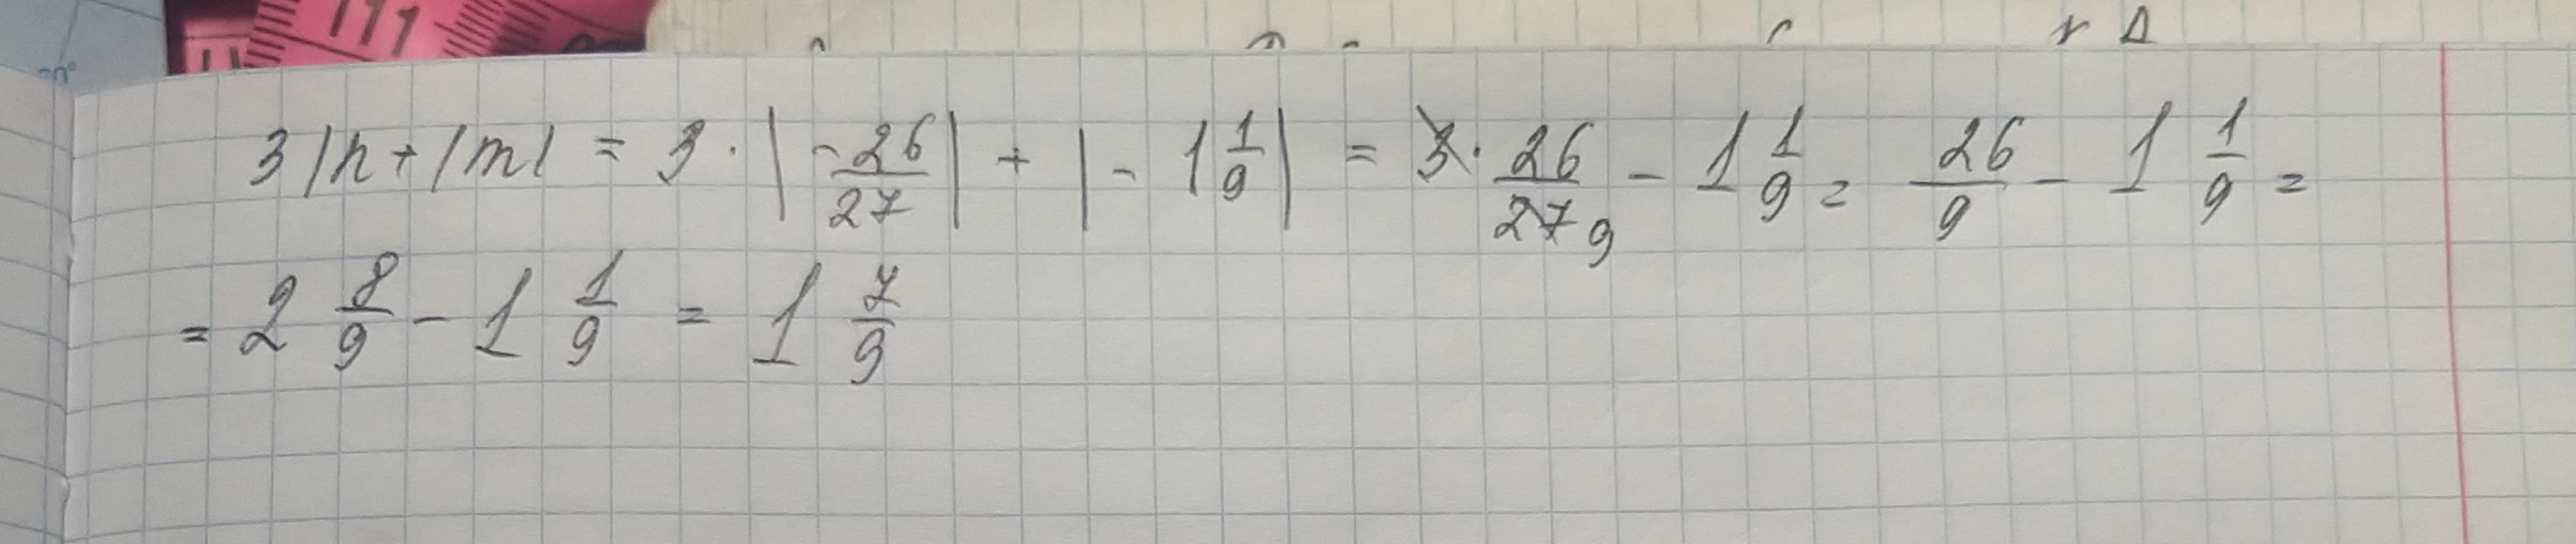 111
3|n+|m| = 3·|-26/27| + |-1 1/9| = 3·26/27 9 - 1 1/9 = 26/9 - 1 1/9 =
= 2 8/9 - 1 1/9 = 1 7/9